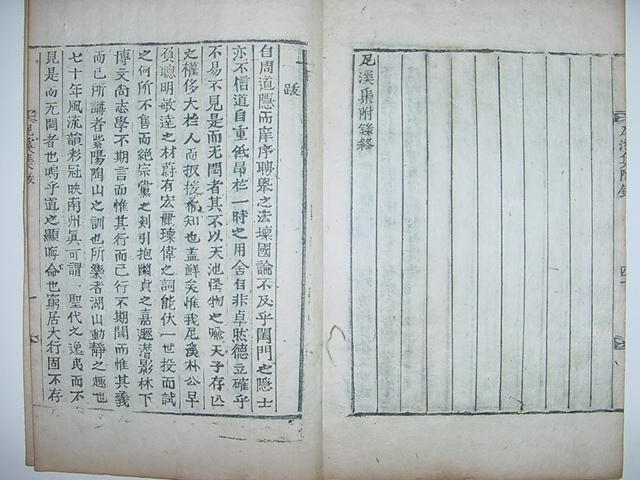 尼溪集附錄終
尼溪集附錄
跋
自周道隱而庠序聘擧之法壞國論不及乎閨門之隱士
亦不信道自重低昻於一時之用舍自非卓然德立確乎
不易不見是而无悶者其不以天池怪物之喩天子存亾
之權侈大於人而援知也盖鮮矣惟我尼溪朴公早
負聰明敏達之材蔚有宏麗瓌偉之詞能伏一世投而試
之何所不售而絶宗黨之剡引抱幽貞之嘉遯潛影林下
博文尚志學不期言而惟其行而已行不期聞而惟其義
而已所講者紫陽陶山之訓也所樂者湖山動靜之趣也
七十年風流韻彩冠映南州眞可謂 聖代之逸民而不
見是而无悶者也嗚乎道之顯晦命也窮居大行固不存
尼溪集跋 一